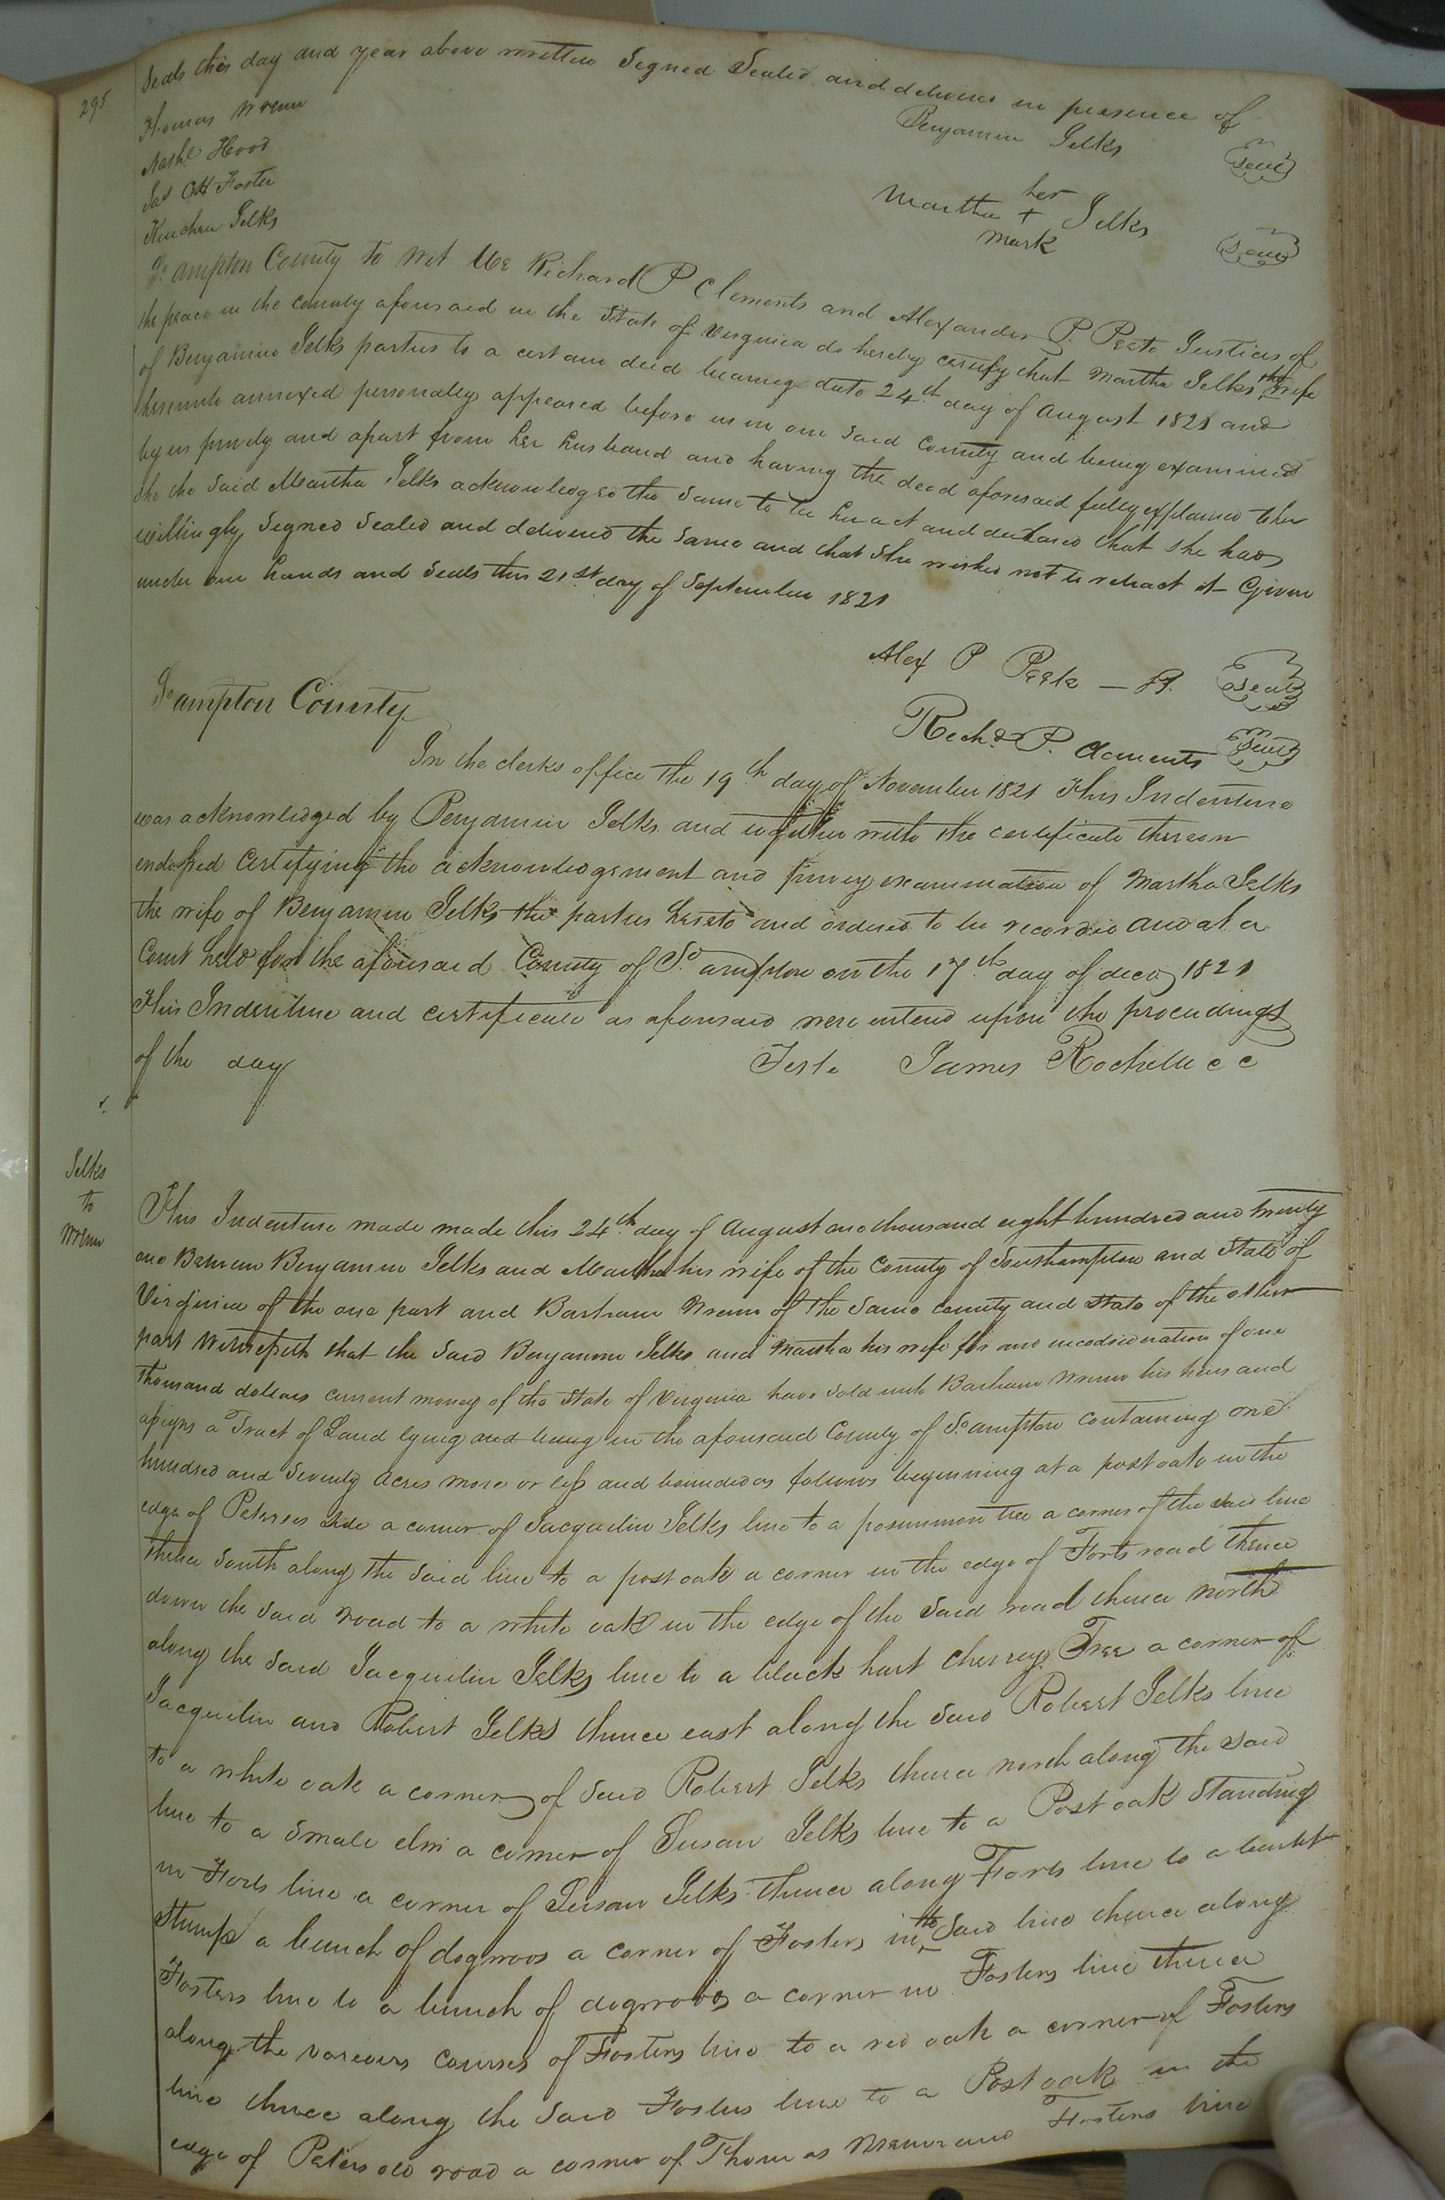 295
Seals this day and year above written Signed Sealed and delivered in presence of
Thomas Wrenn
Benjamin Jelks Seal
Nathl Hood
Jas Foster
her
Martha + Jelks Seal
mark
Kinchen Jelks
So ampton County to wit We Richard P Clements and Alexander P. Peete Justices of
the peace in the County aforesaid in the State of Virginia do hereby certify that Martha Jelks the wife
of Benjamin Jelks parties to a certain deed bearing date 24th day of August 1821 and
hereunto annexed personally appeared before us in our said County and being examined
by us privily and apart from her husband and having the deed aforesaid fully explained to her
she the said Martha Jelks acknowledged the same to be her act and declared that she had
willingly Signed Sealed and delivered the same and that she wished not to retract it Given
under our hands and Seals this 21st day of September 1821
Alex P Peete Seal
Richd P. Clements Seal
So ampton County
In the clerks office the 19th day of November 1821 This Indenture
was acknowledged by Benjamin Jelks and together with the certificate thereon
endorsed Certifying the acknowledgement and privy examination of Martha Jelks
the wife of Benjamin Jelks the parties hereto and ordered to be recorded and at a
Court held for the aforesaid County of So ampton on the 17th day of deco 1821
This Indenture and certificate as aforesaid were entered upon the proceedings
of the day
Teste James Rochelle c c
Jelks
to
Wrenn
This Indenture made made this 24th day of August one thousand eight hundred and twenty
one Between Benjamin Jelks and Martha his wife of the County of Southampton and State of
Virginia of the one part and Barham Wrenn of the same county and state of the other
part Witnesseth that the said Benjamin Jelks and Martha his wife for and in consideration of one
thousand dollars current money of the State of Virginia have sold unto Barham Wrenn his heirs and
assigns a Tract of Land lying and being in the aforesaid County of So ampton containing one
hundred and seventy acres more or less and bounded as follows beginning at a post oak in the
edge of Peterses a corner of Jacquelin Jelks line to a posimmon tree a corner of the said line
thence South along the said line to a post oak a corner in the edge of Forts road thence
down the said road to a white oak in the edge of the said road thence north
along the said Jacquelin Jelks line to a black hart cherry Tree a corner of
Jacquelin and Robert Jelks thence east along the said Robert Jelks line
to a white oak a corner of said Robert Jelks thence north along the said
line to a small elm a corner of Susan Jelks line to a Post oak Standing
in Forts line a corner of Susan Jelks thence along Forts line to a burnt
stump a bunch of dogwoos a corner of Fosters in the said line thence along
Fosters line to a bunch of dogwoods a corner in Fosters line thence
along the various courses of Fosters line to a red oak a corner of Fosters
line thence along the said Fosters line to a Post oak in the
edge of Peters old road a corner of Thomas Wrenn and Fosters line